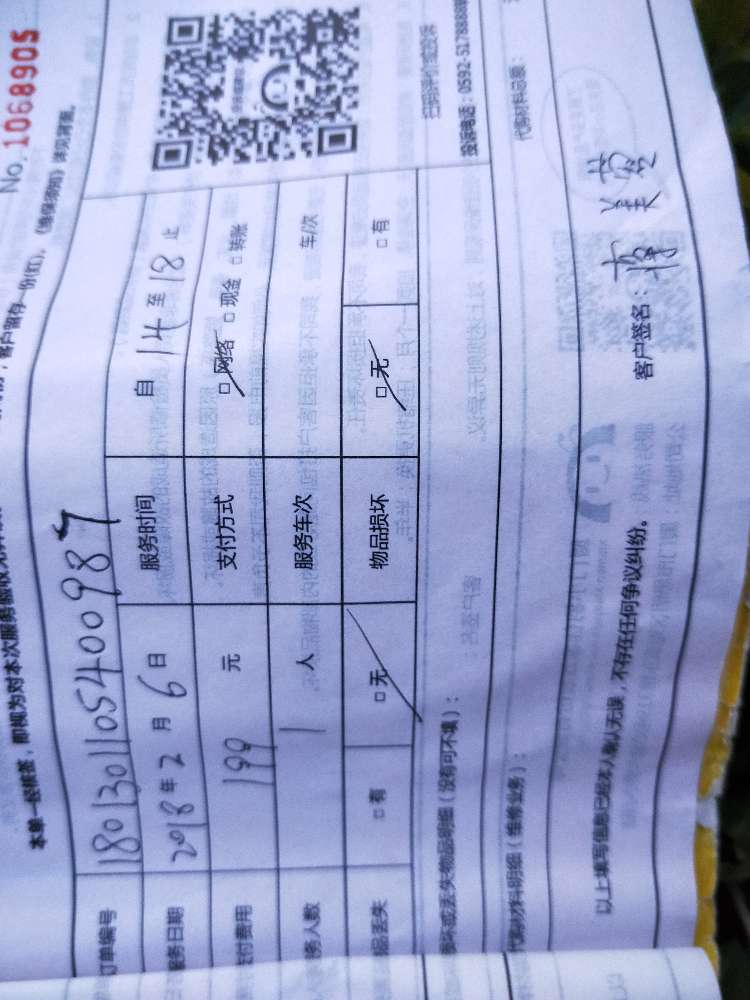 No.1068905
本单一经核签，即视为对本次服务验收
客户留存一份(红)。《维修须知》详见背面。
订单编号 18013011054009 87
服务日期 2018年2月6日 服务时间 自14至18止
支付费用 199元 支付方式 □网络 □现金 □转账
服务人数 1人 服务车次 车/次
物品丢失 □有 □无 物品损坏 □无 □有
损坏或丢失物品明细（没有可不填）：
代购材料明细（维修业务）：
代购材料总额：
扫码评价或投诉
投诉电话：0592-5178888
以上填写信息已经本人确认无误，不存在任何争议纠纷。
客户签名：